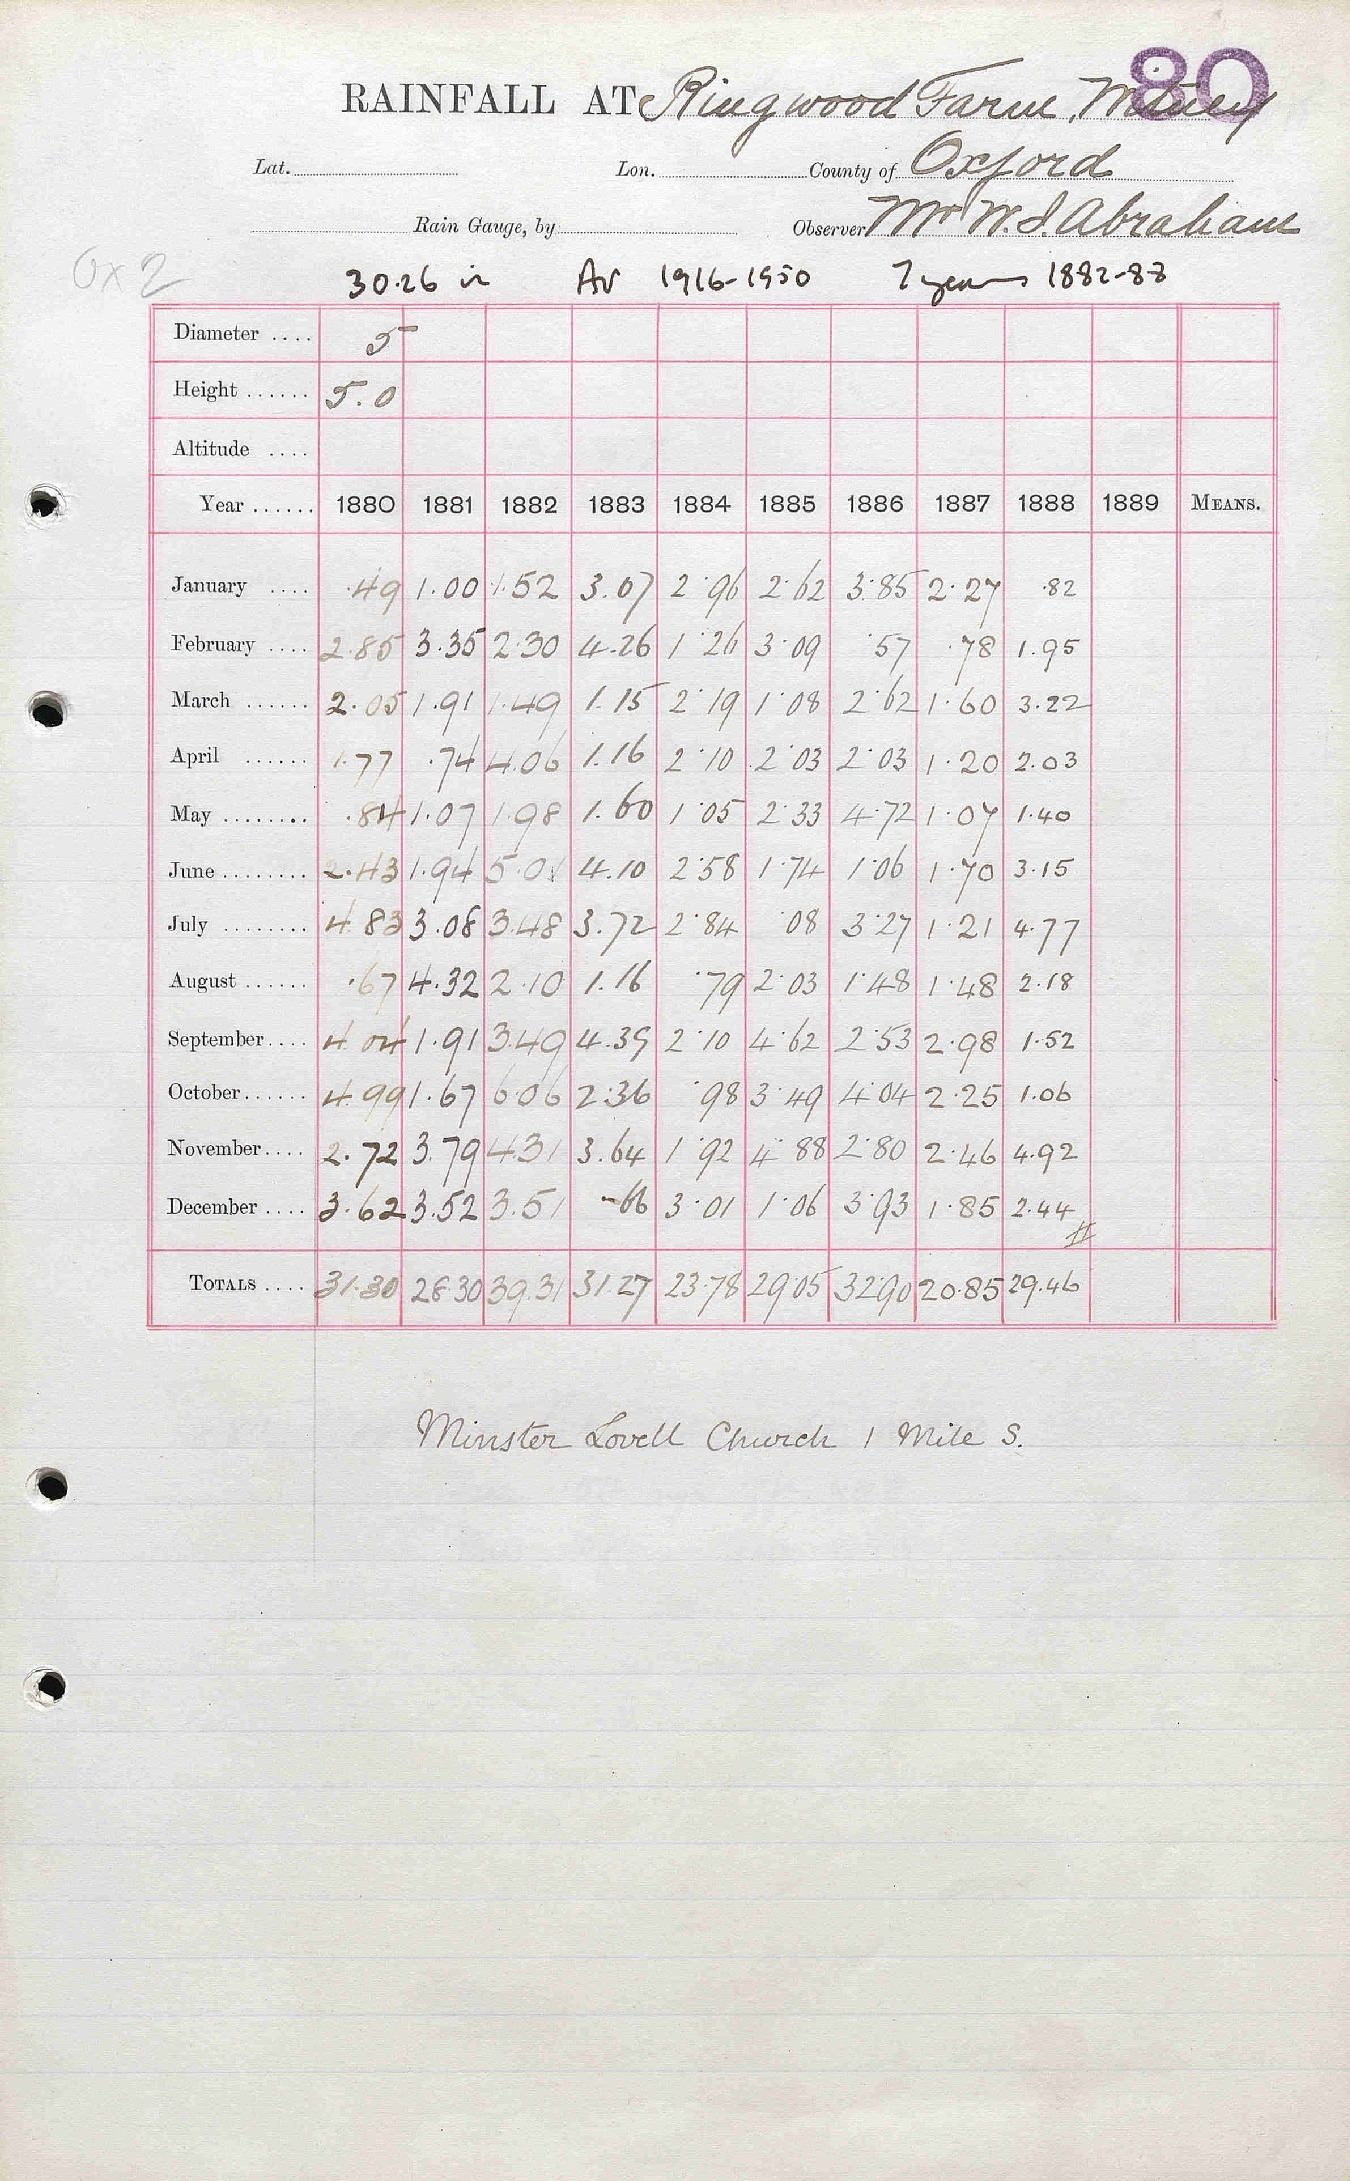 80
RAINFALL AT Ringwood Farm, Witney
Lat. Lon. County of Oxford
Rain Gauge, by Observer Mr W. J. Abraham
Ox 2
30.26 in Av 1916-1950 7 years 1882-88
Diameter .... 5
Height ...... 5.0
Altitude ....
Year ...... 1880 1881 1882 1883 1884 1885 1886 1887 1888 1889 MEANS.
January .... .49 1.00 1.52 3.07 2.96 2.62 3.85 2.27 .82
February .... 2.85 3.35 2.30 4.26 1.26 3.09 .57 .78 1.95
March ...... 2.05 1.91 1.49 1.15 2.19 1.08 2.62 1.60 3.22
April ...... 1.77 .74 4.06 1.16 2.10 2.03 2.03 1.20 2.03
May ........ .84 1.07 1.98 1.60 1.05 2.33 4.72 1.07 1.40
June ........ 2.43 1.94 5.01 4.10 2.58 1.74 1.06 1.70 3.15
July ........ 4.83 3.08 3.48 3.72 2.84 .08 3.27 1.21 4.77
August ...... .67 4.32 2.10 1.16 .79 2.03 1.48 1.48 2.18
September .... 4.04 1.91 3.49 4.39 2.10 4.62 2.53 2.98 1.52
October ...... 4.99 1.67 6.06 2.36 .98 3.49 4.04 2.25 1.06
November .... 2.72 3.79 4.31 3.64 1.92 4.88 2.80 2.46 4.92
December .... 3.62 3.52 3.51 .66 3.01 1.06 3.93 1.85 2.44
TOTALS .... 31.30 28.30 39.31 31.27 23.78 29.05 32.90 20.85 29.46
Minster Lovell Church 1 Mile S.